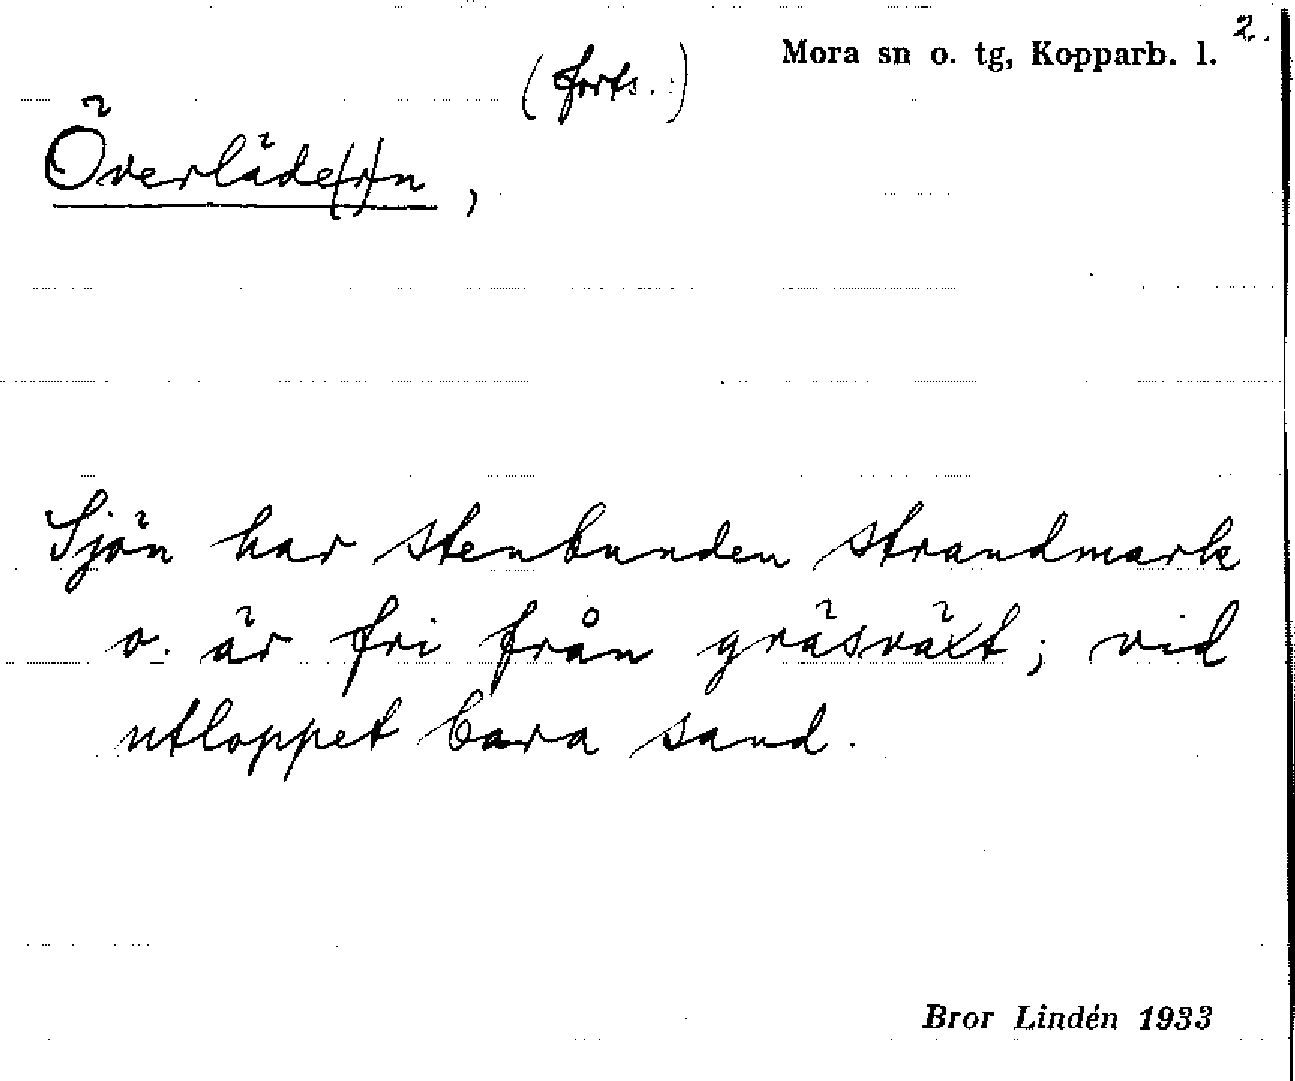 2.
Mora sn o. tg, Kopparb. l.
(forts.)
Överläde(r)n,
Sjön har stenbunden strandmark
o. är fri från gräsväxt; vid
utloppet bara sand.
Bror Lindén 1933